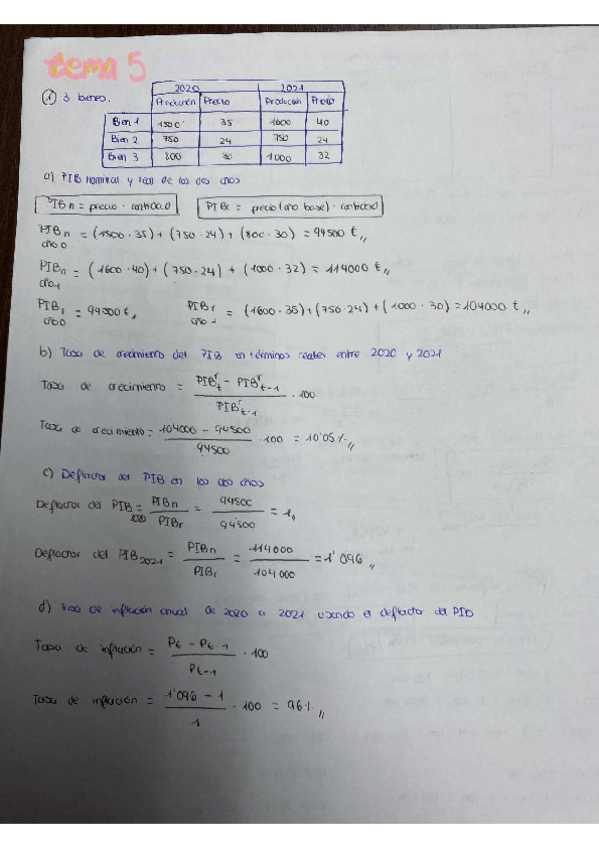 tema 5
① 3 bienes.
2020 2021
Producción Precio Producción Precio
Bien 1 1500 35 1600 40
Bien 2 750 24 750 24
Bien 3 800 30 1000 32
a) PIB nominal y real de los dos años
PIBn = precio · cantidad PIBr = precio (año base) · cantidad
PIBn = (1500·35) + (750·24) + (800·30) = 94500 €,,
año 0
PIBn = (1600·40) + (750·24) + (1000·32) = 114000 €,,
año 1
PIBr = 94500 €,, PIBr = (1600·35) + (750·24) + (1000·30) = 104000 €,,
año 0 año 1
b) Tasa de crecimiento del PIB en términos reales entre 2020 y 2021
Tasa de crecimiento = PIBrt - PIBrt-1 / PIBrt-1 · 100
Tasa de crecimiento = 104000 - 94500 / 94500 · 100 = 10'05%,,
c) Deflactor del PIB en los dos años
Deflactor del PIB2020 = PIBn / PIBr = 94500 / 94500 = 1,,
Deflactor del PIB2021 = PIBn / PIBr = 114000 / 104000 = 1'096,,
d) tasa de inflación anual de 2020 a 2021 usando el deflactor del PIB
Tasa de inflación = Pt - Pt-1 / Pt-1 · 100
Tasa de inflación = 1'096 - 1 / 1 · 100 = 9'6%,,